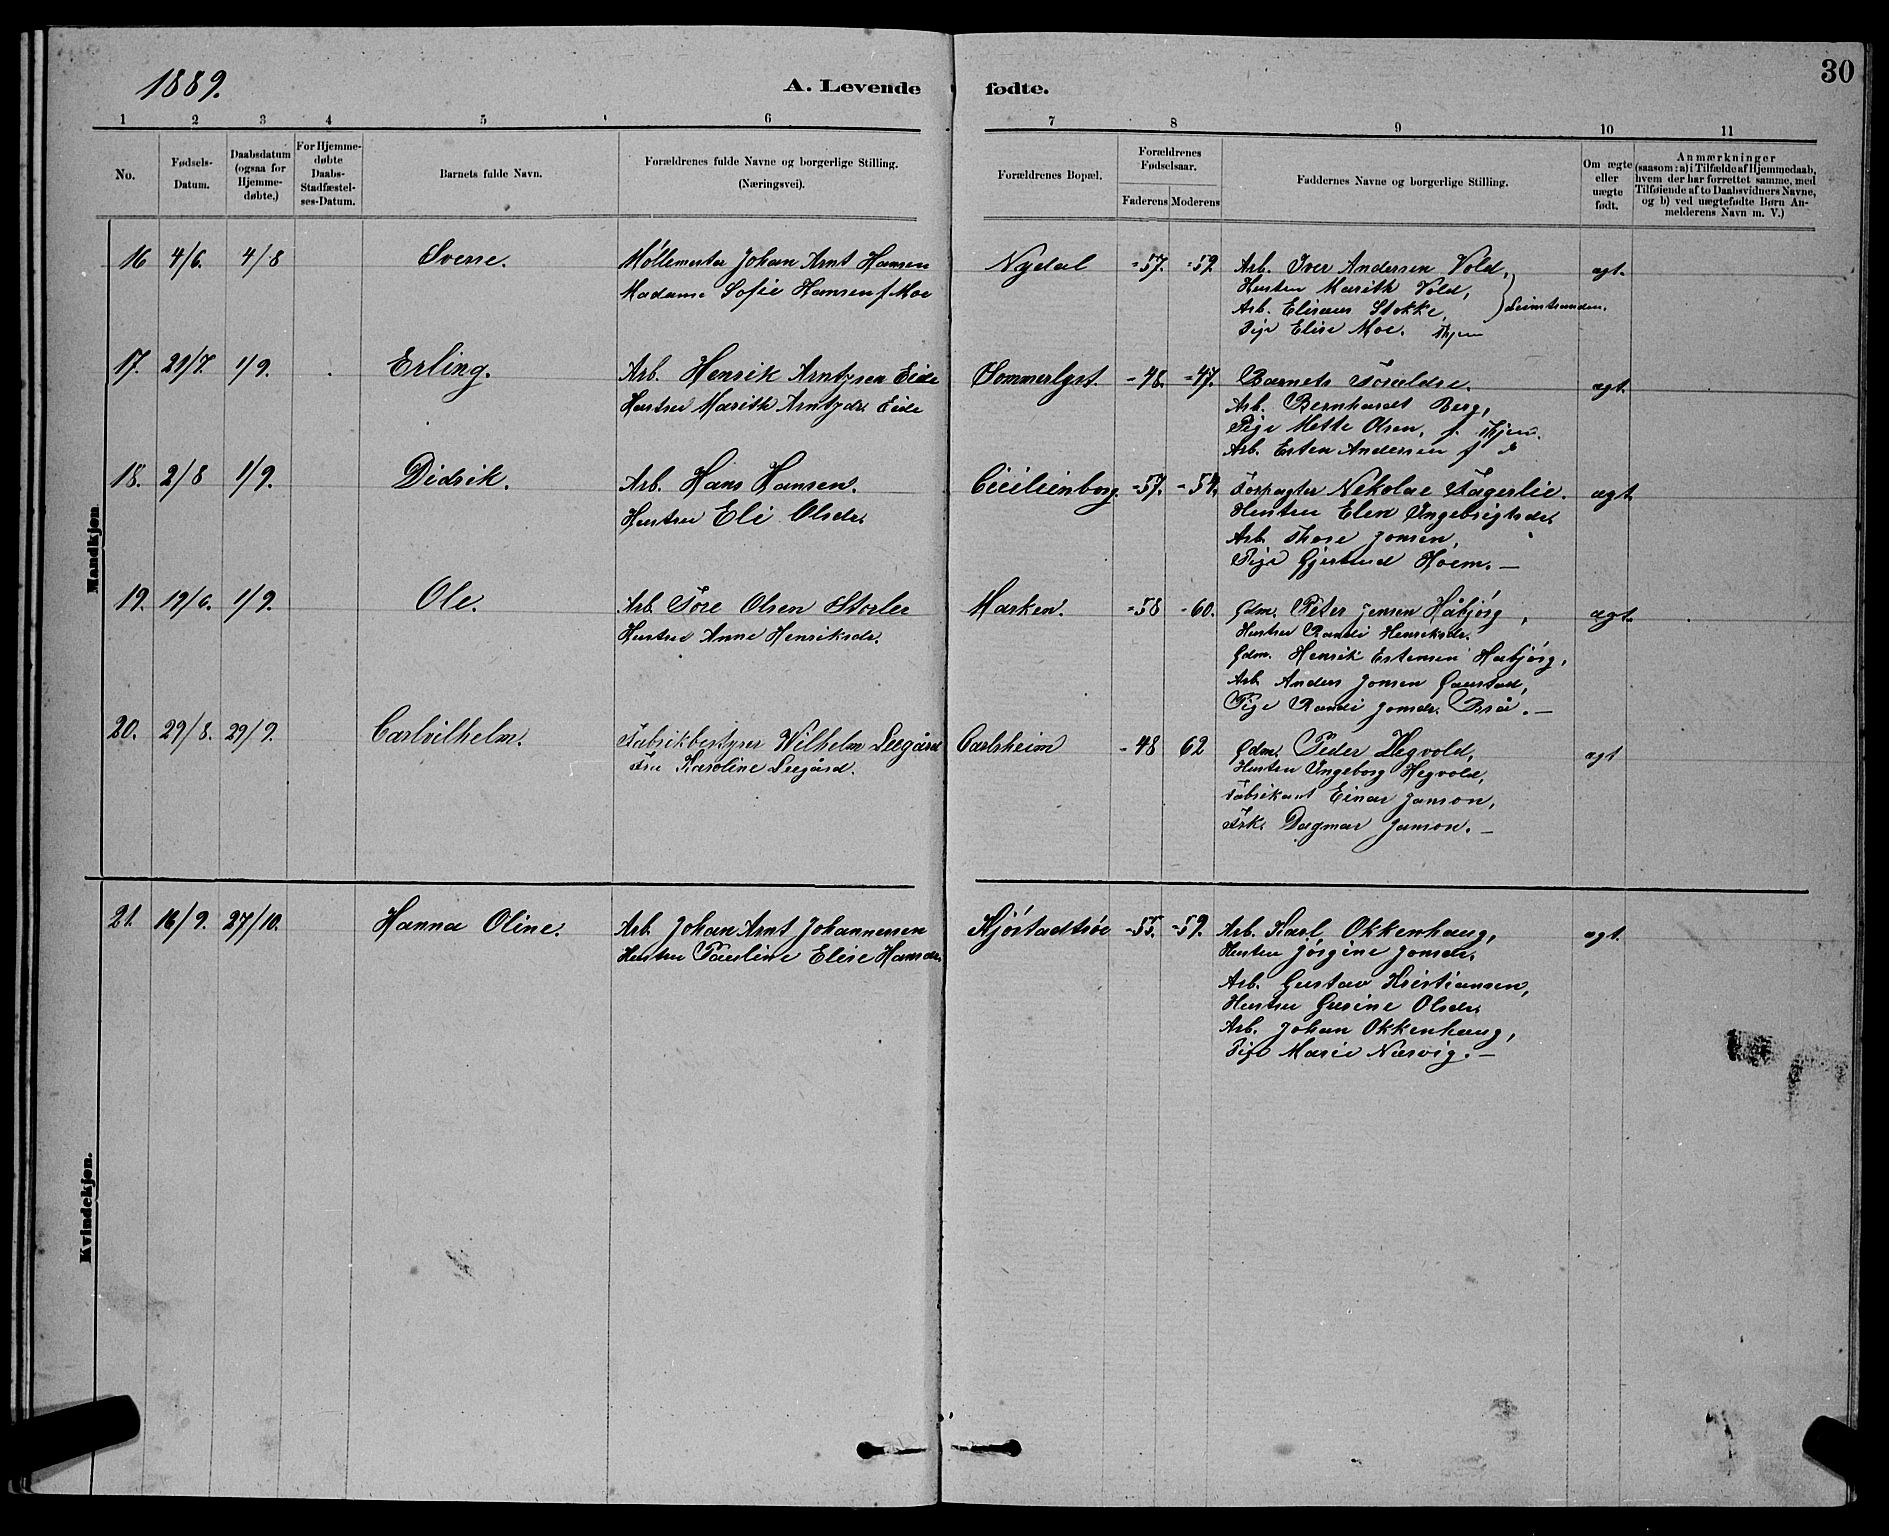 1889.
A. Levende fødte.
30
1 2 3 4 5 6 7 8 9 10 11
No.
Fødsels-Datum.
Daabsdatum (ogsaa for Hjemme-døbte.)
For Hjemme-døbte Daabs-Stadfæstel-ses-Datum.
Barnets fulde Navn.
Forældrenes fulde Navne og borgerlige Stilling.
(Næringsvei).
Forældrenes Bopæl.
Forældrenes Fødselsaar.
Faderens Moderens
Faddernes Navne og borgerlige Stilling.
Om ægte eller uægte født.
Anmærkninger
(saasom: a) i Tilfælde af Hjemmedaab,
hvem der har forrettet samme, med
Tilføiende af to Daabsvidners Navne,
og b) ved uægtefødte Børn An-
melderens Navn m. V.)
Mandkjøn.
16 4/6. 4/8 Sverre. Møllemester Johan Arnt Hansen Nydal =57. =59. Arb. Iver Andersen Vold, ægt.
Madame Sofie Hansen f. Moe Hustru Marith Vold,
Arb. Eliseus Stokke, Leinstranden.
Pige Elise Moe. Thjem
17. 21/7. 1/9. Erling. Arb. Henrik Arntzen Eide Sommerlyst. =48. =47. Barnets Forældre. ægt.
Hustru Marith Arntzdr. Eide Arb. Bernhardt Berg,
Pige Mette Olsen, f. Thjem.
Arb. Esten Andersen
18. 2/8 1/9. Didrik. Arb. Hans Hansen. Cicilienborg. =57. =54. Forpagter Nikolai Fagerlie. ægt
Hustru Eli Olsdr. Hustru Elen Ingebrigtsdr.
Arb. Thore Jonsen,
Pige Gjertrud Hoem. —
19. 19/6. 1/9. Ole. Arb. Tore Olsen Storlee Marken. =58 =60. Gdm. Peter Jensen Håbjørg, ægt.
Hustru Anne Henriksdr. Hustru Randi Henriksdr.
Gdm. Henrik Estensen Håbjørg,
Arb. Anders Jonsen Gaustad,
Pige Randi Jonsdr. Brå. —
20. 29/8. 29/9. Carlvilhelm. Fabrikbestyrer Wilhelm Leegård Carlsheim =48 62 Gdm. Peder Hegvold, ægt
Fru Karoline Leegård. Hustru Ingeborg Hegvold,
Fabrikant Einar Janson,
Frk. Dagmar Janson. —
Kvindekjøn.
21. 16/9. 27/10. Hanna Oline. Arb. Johan Arnt Johannesen Kjøstadtrøe =55. =59. Arb. Karl Okkenhaug, ægt.
Hustru Pauline Elise Hansdr. Hustru Jørgine Jonsdr.
Arb. Gustav Kristiansen,
Hustru Gurine Olsdr.
Arb. Johan Okkenhaug,
Pige Marie Narvig. —